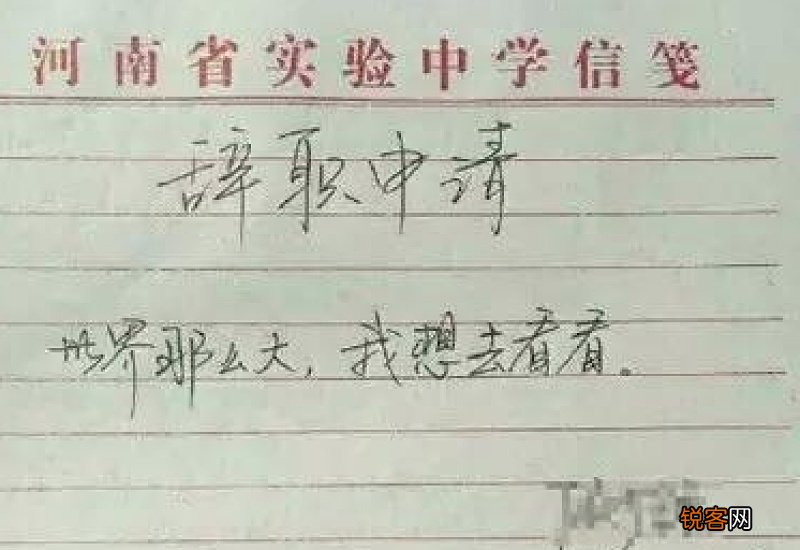 河南省实验中学信笺
辞职申请
世界那么大，我想去看看。
锐客网